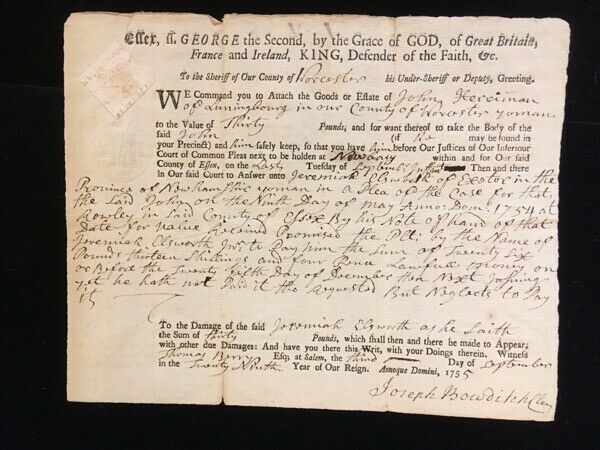 Essex, ss. GEORGE the Second, by the Grace of GOD, of Great Britain,
France and Ireland, KING, Defender of the Faith, &c.
To the Sheriff of Our County of Worcester his Under-Sheriff or Deputy, Greeting.
WE Command you to Attach the Goods or Estate of John Herriman
of Luningbourg in our County of Worcester yeoman
to the Value of Thirty Pounds, and for want thereof to take the Body of the
said John (if He may be found in
your Precinct) and him safely keep, so that you have him before Our Justices of Our Inferiour
Court of Common Pleas next to be holden at Newbury within and for Our said
County of Essex, on the Last Tuesday of September Then and there
in Our said Court to Answer unto Jeremiah Elsworth of Exetor in the
Province of New hampshire yeoman in a Plea of the Case for that
the said John on the Ninth Day of may Anno: Dom: 1754 at
Rowley in said County of Essex By his Note of hand of that
Date for Value Received Promised the Plt: by the Name of
Jeremiah Elsworth Jnr: to Pay him the Sum of Twenty Six
Pounds thirteen Shillings and four Pence Lawfull money on
or Before the Twenty fifth Day of December then Next John
yet he hath not Paid it tho Requested But Neglects to Pay
it
To the Damage of the said Jeremiah Elsworth as he Saith
the Sum of thirty Pounds, which shall then and there be made to Appear,
with other due Damages: And have you there this Writ, with your Doings therein. Witness
Thomas Berry Esq; at Salem, the third Day of September
in the Twenty Ninth Year of Our Reign. Annoque Domini, 1755
Joseph Bowditch Cler